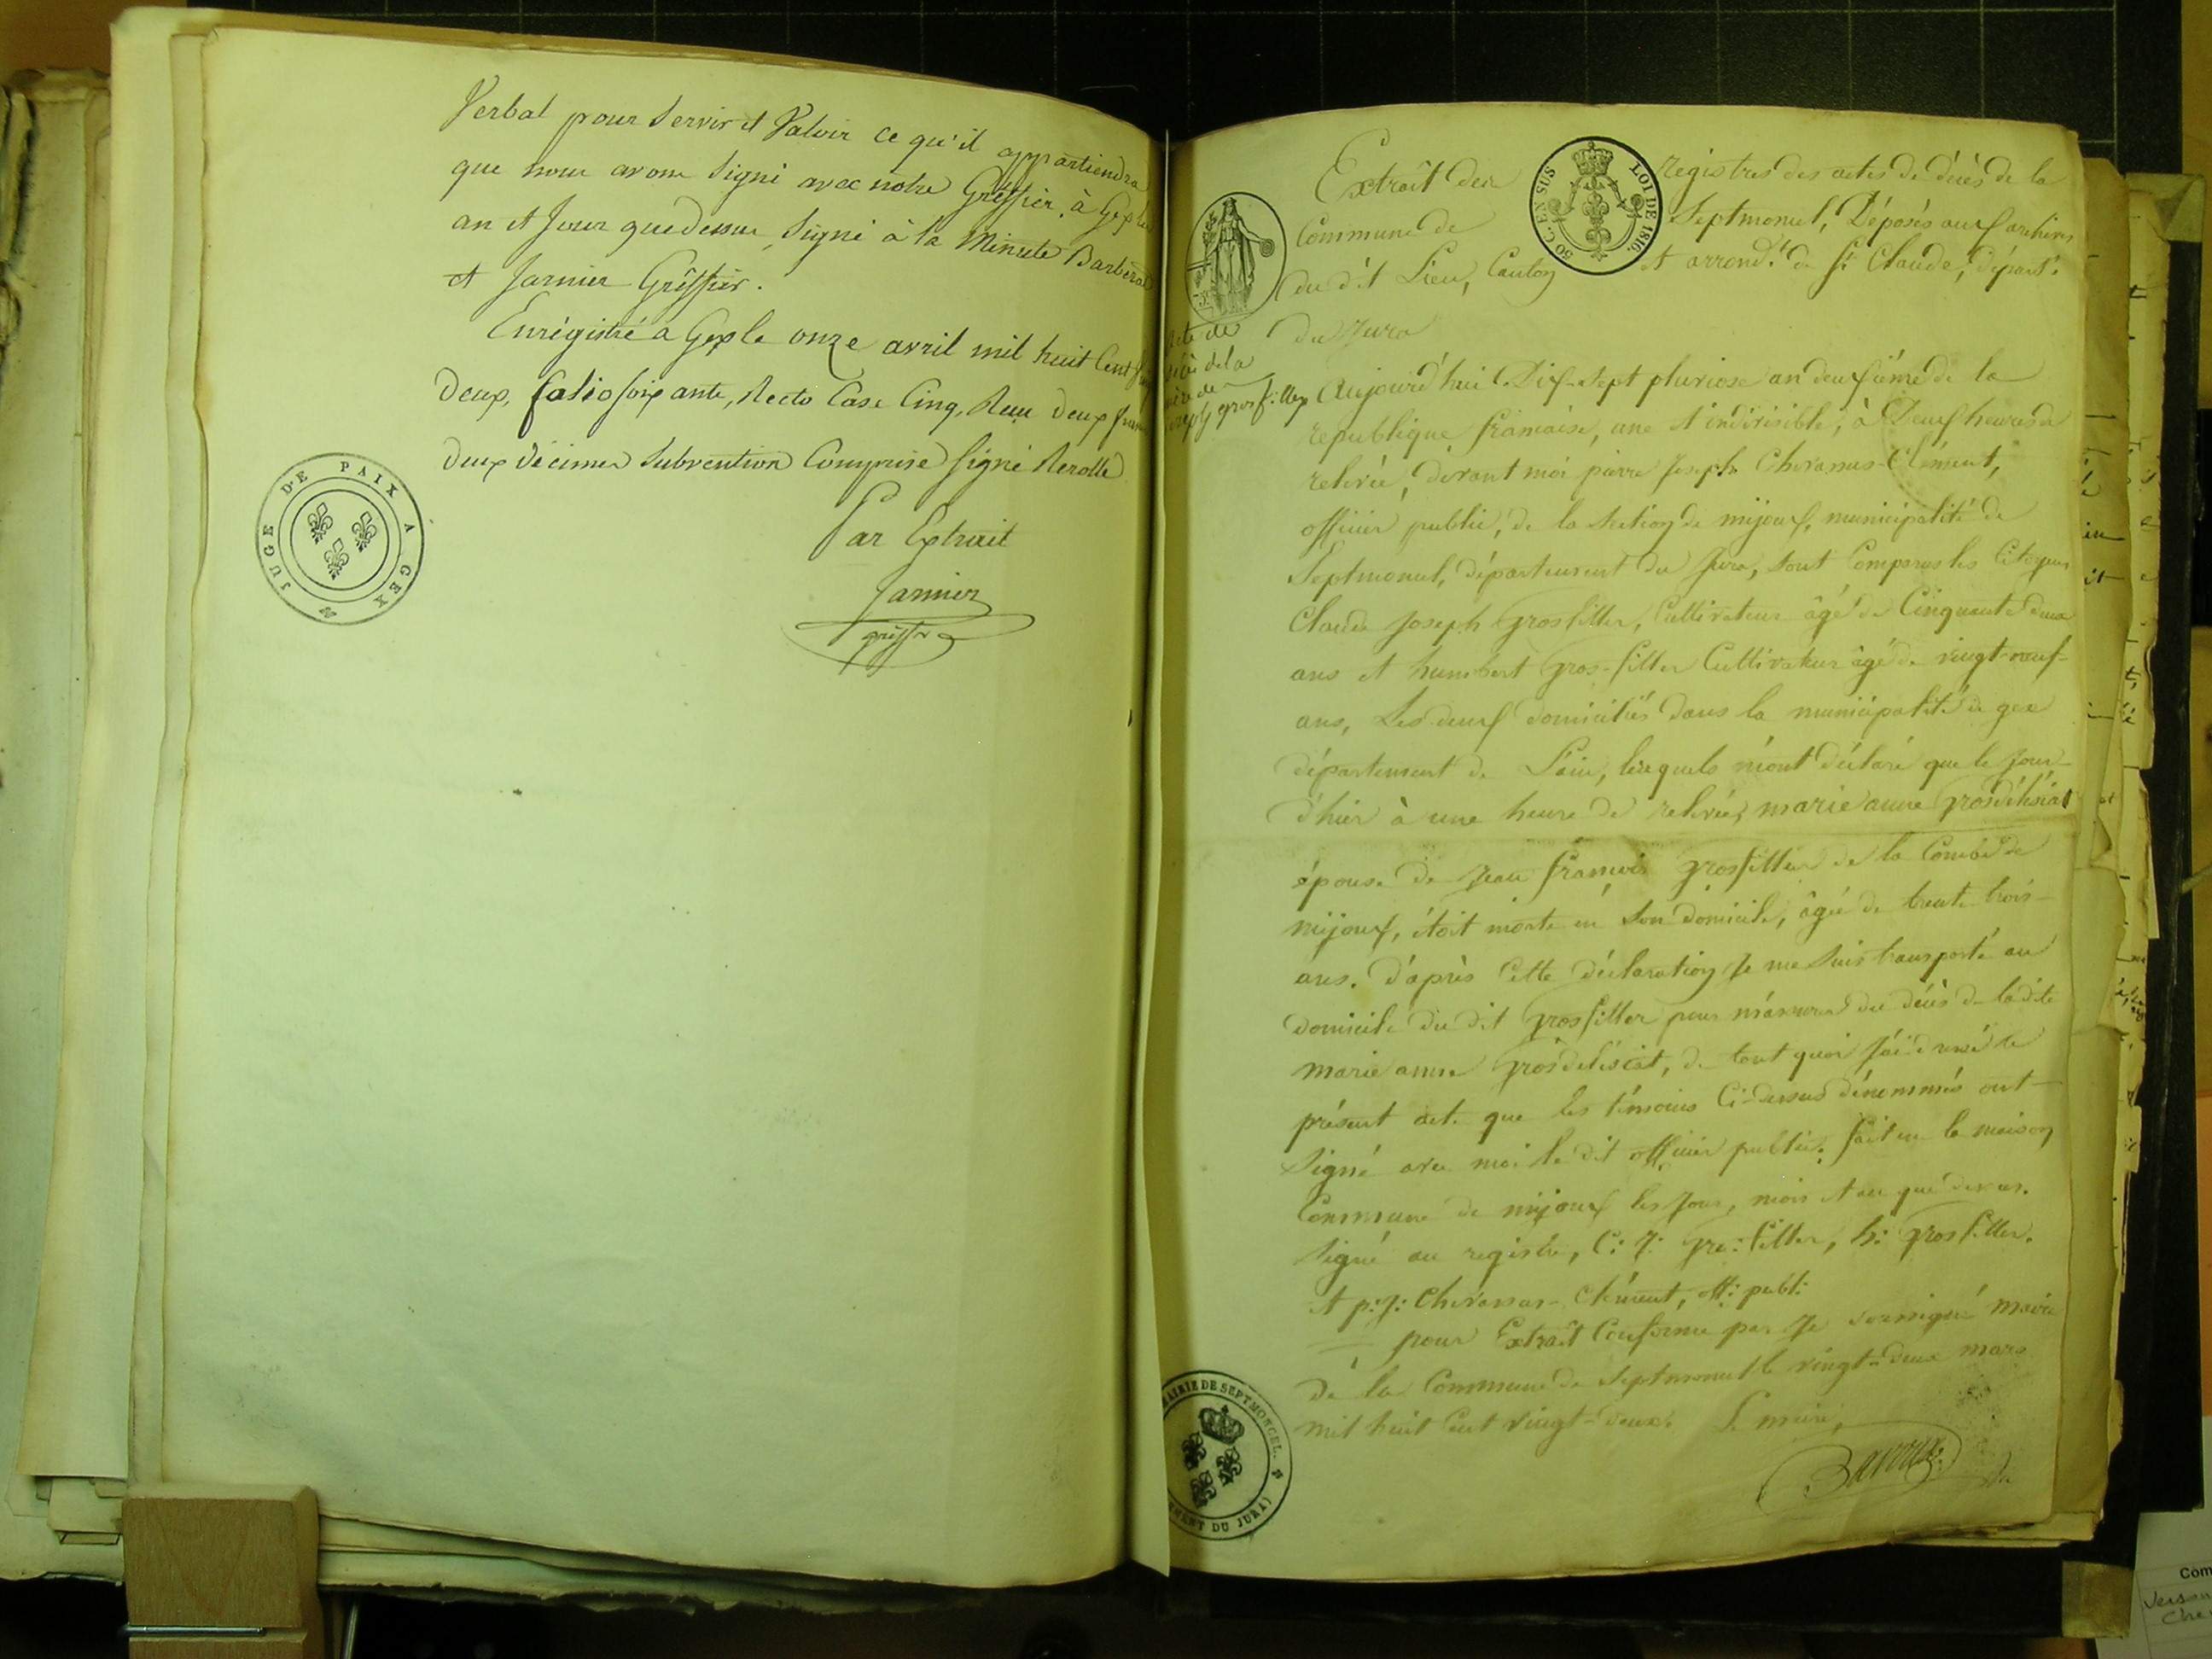 Verbal pour servir et Valoir ce qu'il appartiendra
que nous avons signé avec notre Greffier, à Gex les
an et Jour que dessus, signé à la Minute Barberat
et Jarnier Greffier.
Enrégistré a Gex le onze avril mil huit Cent
Deux, folio soixante, Recto Case Cinq, Reçu deux francs
deux décimes subvention Comprise signé Rerolle
Par Extrait
Jarnier
greffr
JUGE DE PAIX A GEX
Extrait des registres des actes de décès de la
Commune de Septmoncel, Déposés aux archives
du dit Lieu, Canton et arrond.t de St Claude, départ.t
du Jura
50 C. EN SUS LOI DE 1816.
acte de
décès de la
mère de
grosfiller
Aujourd'hui Dix-sept pluviose an deuxième de la
republique francaise, une et indivisible, à Deux heures de
relevée, devant moi pierre Joseph Chevassus-Clément,
officier public, de la section de mijoux, municipalité de
Septmoncel, département du Jura, sont Comparus les Citoyens
Claude Joseph Grosfiller, Cultivateur âgé de Cinquante deux
ans et humbert Gros-filler Cultivateur âgé de vingt-neuf-
ans, Les deux domiciliés dans la municipalité de gex
département de L'ain, lesquels m'ont déclaré que le jour-
d'hier à une heure de relevée, marie anne Grosdelisiat
épouse de Jean francois Grosfiller de la Combe de
mijoux, étoit morte en son domicile, âgée de trente trois-
ans. D'après Cette déclaration Je me suis transporté au
domicile du dit Grosfiller pour m'assurer du décès de ladite
marie anne Grosdelisiat, de tout quoi J'ai dressé le
présent act. que les témoins Ci-dessus dénommés ont-
signé avec moi le dit officier public. fait en la maison
Commune de mijoux les Jour, mois et an que dessus.
signé au registre, C: J: Gro: filler, h: Grosfiller.
et p: J: Chevassus-Clément, off: publ:
pour Extrait Conforme par Je soussigné maire
de la Commune de Septmoncel le vingt-deux mars
mil huit Cent vingt-deux. Le maire,
MAIRIE DE SEPTMONCEL. DU JURA
Com